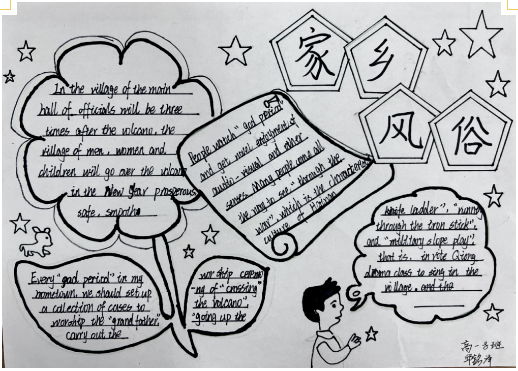 家乡
风俗
In the village of the main
hall of officials will be three
times after the volcano, the
village of men, women and
children will go over the volcano
in the New Year prosperous
safe, smooths
People worship "god period"
and get moral enjoyment of
audio-visual and other
senses. Many people come all
the way to see "through the
war", which is the characteristic
culture of Hainan
Every "god period" in my
hometown, we should set up
a collection of cases to
worship the "grandfather",
carry out the
worship ceremo-
ny of "crossing
the volcano",
"going up the
knife ladder", "running
through the iron stick",
and "military slope play",
that is, invite Qiong
drama class to sing in the
village, and the
高一3班